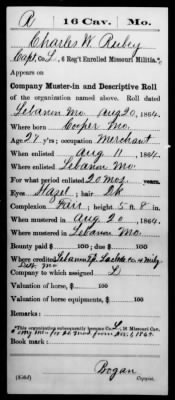 R | 16 Cav. | Mo.
Charles W. Ruby
Capt., Co. L, 6 Reg't Enrolled Missouri Militia.*
Appears on
Company Muster-in and Descriptive Roll
of the organization named above. Roll dated
Lebanon Mo Aug 20, 1864.
Where born Cooper Mo.
Age 27 y'rs; occupation Merchant
When enlisted Aug 11, 1864.
Where enlisted Lebanon Mo.
For what period enlisted 20 mos.
Eyes Hazel; hair Dk
Complexion Fair; height 5 ft. 8 in.
When mustered in Aug 20, 1864.
Where mustered in Lebanon Mo.
Bounty paid $ 100; due $ 100
Where credited Lebanon Tp. Laclede Co.
Company to which assigned L
Valuation of horse, $ 100
Valuation of horse equipments, $ 100
Remarks:
*This organization subsequently became Co. L, 16 Missouri Cav.
Book mark:
Bogan
(346d) Copyist.